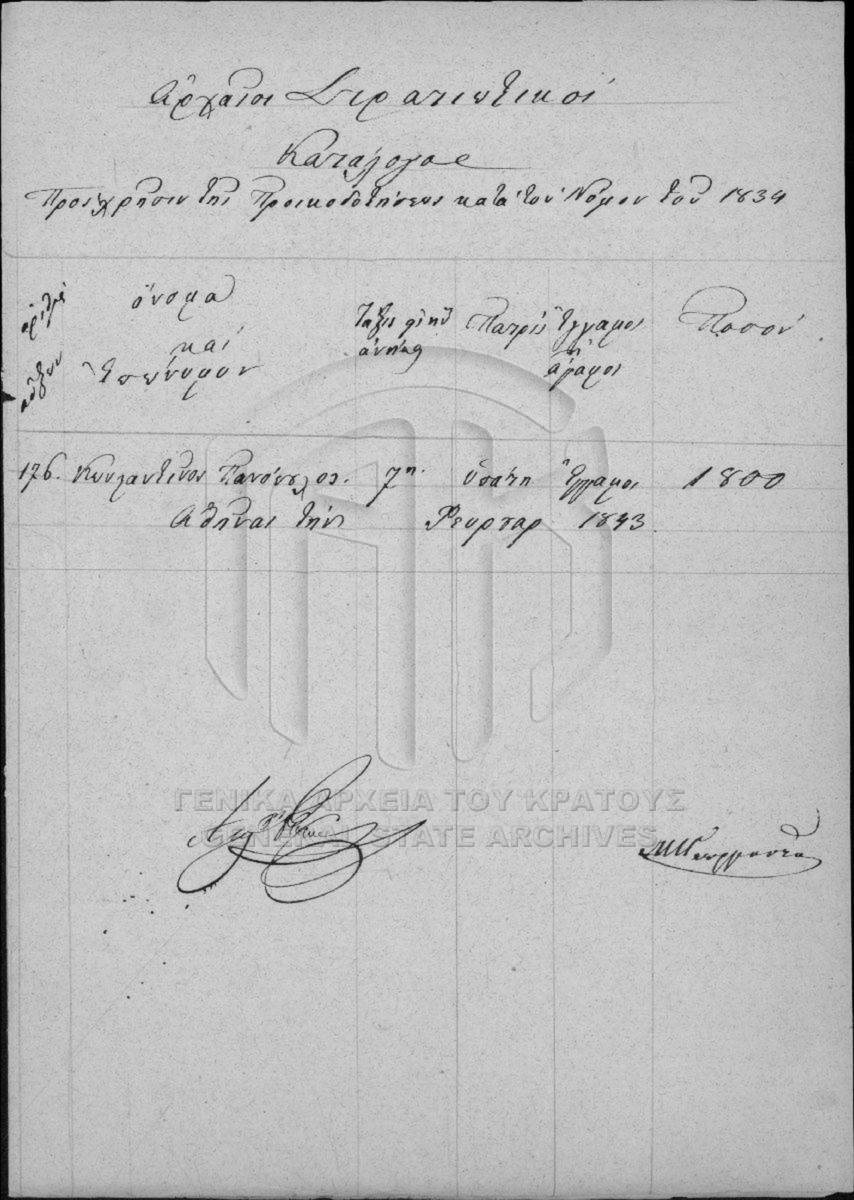 Ἀρχαῖοι Στρατιωτικοί
Κατάλογος
Πρὸς χρῆσιν τῆς Προικοδοτήσεως κατὰ τὸν Νόμον τοῦ 1834
ἀριθμὸ αὔξων
ὄνομα
καὶ
Ἐπώνυμον
Τάξις εἰς ἣν
ἀνήκει
Πατρὶς
Ἔγγαμοι
ἢ
ἄγαμοι
Ποσόν
176. Κωνσταντῖνος Πανόπουλος. 7η. Ὑπάτη Ἔγγαμοι 1800
Ἀθῆναι τὴν Φευρουαρ 1843
ΓΕΝΙΚΑ ΑΡΧΕΙΑ ΤΟΥ ΚΡΑΤΟΥΣ
GENERAL STATE ARCHIVES